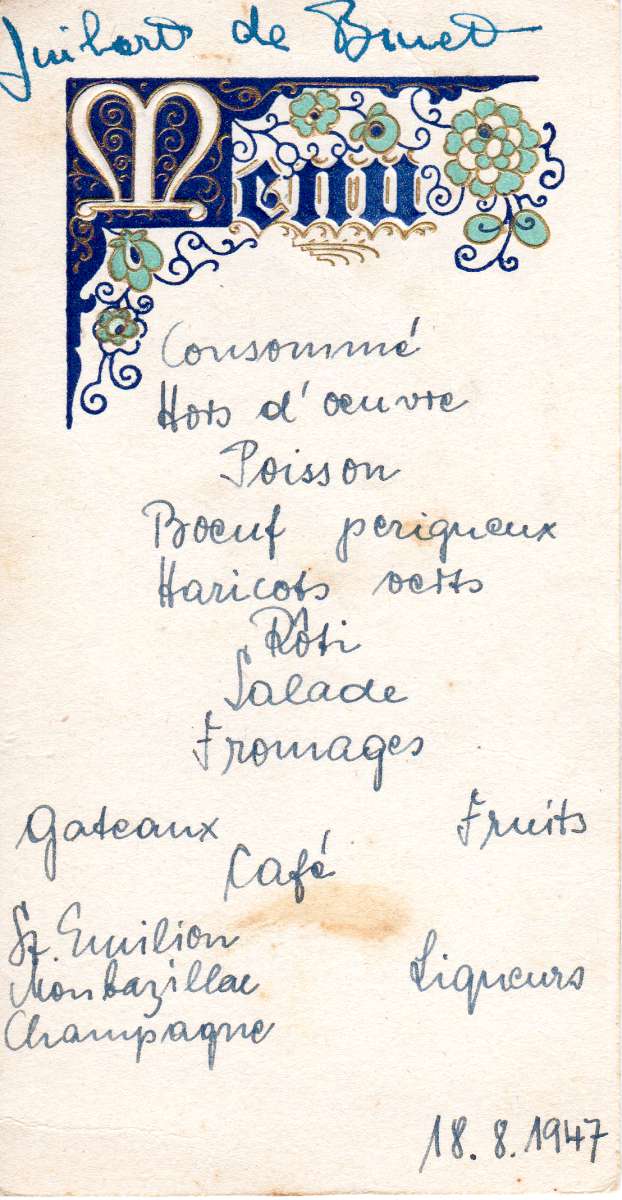 de
Menu
Consommé
Hors d'oeuvre
Poisson
Boeuf perigueux
Haricots verts
Rôti
Salade
Fromages
Gateaux Fruits
Café
St. Emilion
Monbazillac Liqueurs
Champagne
18.8.1947